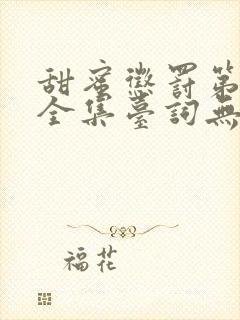 甜蜜懲罰第
全集臺詞無
福花